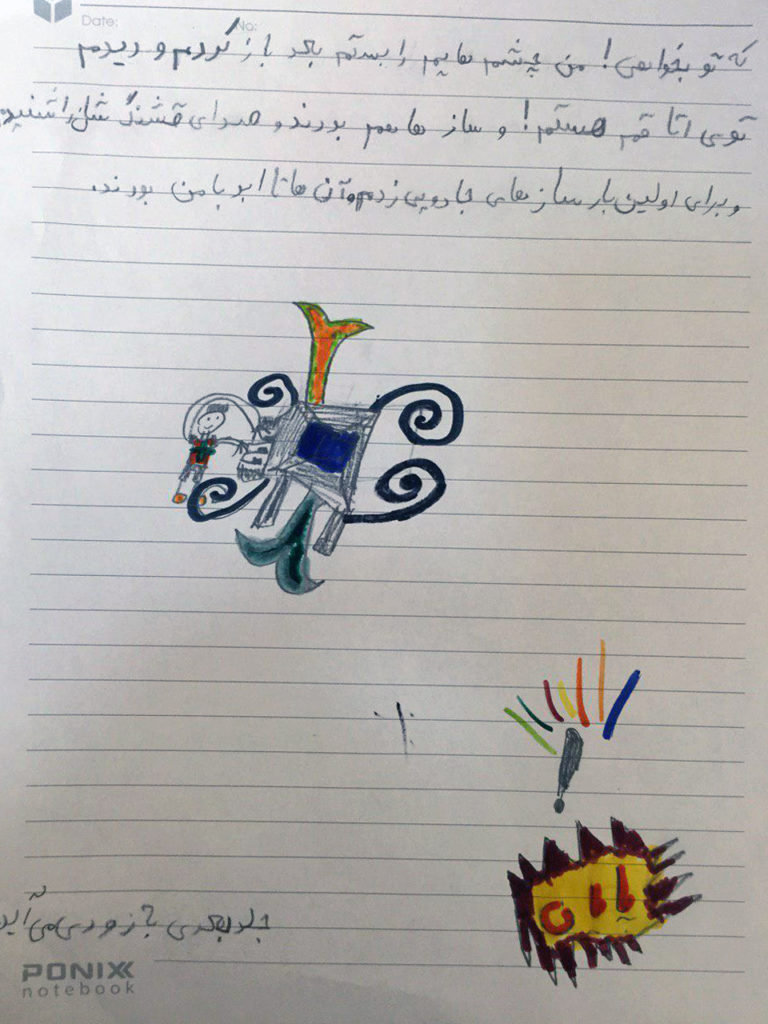 PONIX
Date:
No:
که تو بخواهی! من چشم هایم را بستم بعد باز کردم و دیدم
توی اتا قم هستم! و ساز ها هم بودند و صدای قشنگ شان را شنیدم
و برای اولین بار ساز های جادویی زدم و آن ها تا ابد با من بودند.
پایان
جلد بعدی به زودی می آید
PONIX
notebook